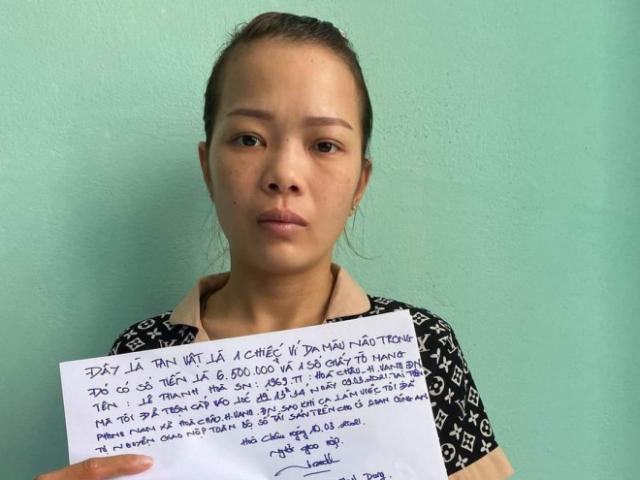 ĐÂY LÀ TAN VẬT LÀ 1 CHIẾC VÍ DA MÀU NÂU TRONG
ĐÓ CÓ SỐ TIỀN LÀ 6.500.000 VÀ 1 SỐ GIẤY TỜ MANG
TÊN : LÊ THANH HOÀ SN : 1969 . TT : HOÀ CHÂU . H.VANG.ĐN
MÀ TÔI ĐÃ TRỘM CẮP VÀO LÚC NGÀY 09.03.2021 TẠI
PHONG NAM XÃ HOÀ CHÂU. H.VANG.ĐN SAU KHI CA LÀM VIỆC TÔI ĐÃ
TỰ NGUYỆN GIAO NỘP TOÀN BỘ SỐ TÀI SẢN TRÊN CHO CƠ QUAN CÔNG AN
Hoà Châu ngày 10.03.
Người giao nộp.